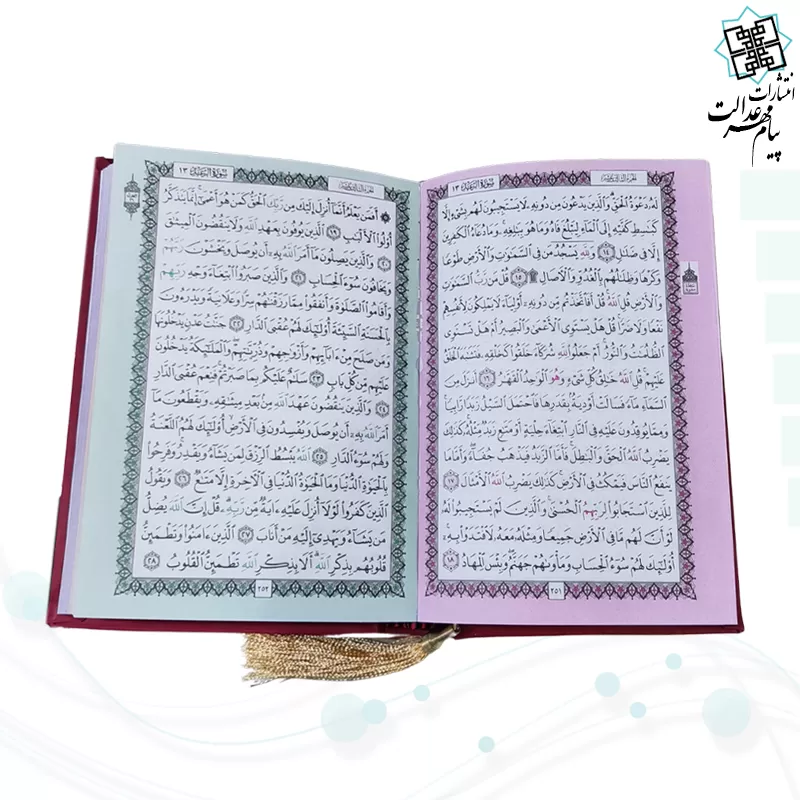 انتشارات
پیام مهر عدالت
سُورَةُ الرَّعْدِ ١٣
لَهُۥ دَعْوَةُ ٱلْحَقِّ وَٱلَّذِينَ يَدْعُونَ مِن دُونِهِۦ لَا يَسْتَجِيبُونَ لَهُم بِشَىْءٍ إِلَّا
كَبَٰسِطِ كَفَّيْهِ إِلَى ٱلْمَآءِ لِيَبْلُغَ فَاهُ وَمَا هُوَ بِبَٰلِغِهِۦ وَمَا دُعَآءُ ٱلْكَٰفِرِينَ
إِلَّا فِى ضَلَٰلٍ ١٤ وَلِلَّهِ يَسْجُدُ مَن فِى ٱلسَّمَٰوَٰتِ وَٱلْأَرْضِ طَوْعًا
وَكَرْهًا وَظِلَٰلُهُم بِٱلْغُدُوِّ وَٱلْءَاصَالِ ۩ ١٥ قُلْ مَن رَّبُّ ٱلسَّمَٰوَٰتِ
وَٱلْأَرْضِ قُلِ ٱللَّهُ قُلْ أَفَٱتَّخَذْتُم مِّن دُونِهِۦٓ أَوْلِيَآءَ لَا يَمْلِكُونَ لِأَنفُسِهِمْ
نَفْعًا وَلَا ضَرًّا قُلْ هَلْ يَسْتَوِى ٱلْأَعْمَىٰ وَٱلْبَصِيرُ أَمْ هَلْ تَسْتَوِى
ٱلظُّلُمَٰتُ وَٱلنُّورُ أَمْ جَعَلُوا۟ لِلَّهِ شُرَكَآءَ خَلَقُوا۟ كَخَلْقِهِۦ فَتَشَٰبَهَ ٱلْخَلْقُ
عَلَيْهِمْ قُلِ ٱللَّهُ خَٰلِقُ كُلِّ شَىْءٍ وَهُوَ ٱلْوَٰحِدُ ٱلْقَهَّٰرُ ١٦ أَنزَلَ مِنَ
ٱلسَّمَآءِ مَآءً فَسَالَتْ أَوْدِيَةٌۢ بِقَدَرِهَا فَٱحْتَمَلَ ٱلسَّيْلُ زَبَدًا رَّابِيًا
وَمِمَّا يُوقِدُونَ عَلَيْهِ فِى ٱلنَّارِ ٱبْتِغَآءَ حِلْيَةٍ أَوْ مَتَٰعٍ زَبَدٌ مِّثْلُهُۥ كَذَٰلِكَ
يَضْرِبُ ٱللَّهُ ٱلْحَقَّ وَٱلْبَٰطِلَ فَأَمَّا ٱلزَّبَدُ فَيَذْهَبُ جُفَآءً وَأَمَّا مَا
يَنفَعُ ٱلنَّاسَ فَيَمْكُثُ فِى ٱلْأَرْضِ كَذَٰلِكَ يَضْرِبُ ٱللَّهُ ٱلْأَمْثَالَ ١٧
لِلَّذِينَ ٱسْتَجَابُوا۟ لِرَبِّهِمُ ٱلْحُسْنَىٰ وَٱلَّذِينَ لَمْ يَسْتَجِيبُوا۟ لَهُۥ
لَوْ أَنَّ لَهُم مَّا فِى ٱلْأَرْضِ جَمِيعًا وَمِثْلَهُۥ مَعَهُۥ لَٱفْتَدَوْا۟ بِهِۦٓ
أُو۟لَٰٓئِكَ لَهُمْ سُوٓءُ ٱلْحِسَابِ وَمَأْوَىٰهُمْ جَهَنَّمُ وَبِئْسَ ٱلْمِهَادُ ١٨
٢٥١
سُورَةُ الرَّعْدِ ١٣
۞ أَفَمَن يَعْلَمُ أَنَّمَآ أُنزِلَ إِلَيْكَ مِن رَّبِّكَ ٱلْحَقُّ كَمَنْ هُوَ أَعْمَىٰٓ إِنَّمَا يَتَذَكَّرُ
أُو۟لُوا۟ ٱلْأَلْبَٰبِ ١٩ ٱلَّذِينَ يُوفُونَ بِعَهْدِ ٱللَّهِ وَلَا يَنقُضُونَ ٱلْمِيثَٰقَ
٢٠ وَٱلَّذِينَ يَصِلُونَ مَآ أَمَرَ ٱللَّهُ بِهِۦٓ أَن يُوصَلَ وَيَخْشَوْنَ رَبَّهُمْ
وَيَخَافُونَ سُوٓءَ ٱلْحِسَابِ ٢١ وَٱلَّذِينَ صَبَرُوا۟ ٱبْتِغَآءَ وَجْهِ رَبِّهِمْ
وَأَقَامُوا۟ ٱلصَّلَوٰةَ وَأَنفَقُوا۟ مِمَّا رَزَقْنَٰهُمْ سِرًّا وَعَلَانِيَةً وَيَدْرَءُونَ
بِٱلْحَسَنَةِ ٱلسَّيِّئَةَ أُو۟لَٰٓئِكَ لَهُمْ عُقْبَى ٱلدَّارِ ٢٢ جَنَّٰتُ عَدْنٍ يَدْخُلُونَهَا
وَمَن صَلَحَ مِنْ ءَابَآئِهِمْ وَأَزْوَٰجِهِمْ وَذُرِّيَّٰتِهِمْ وَٱلْمَلَٰٓئِكَةُ يَدْخُلُونَ
عَلَيْهِم مِّن كُلِّ بَابٍ ٢٣ سَلَٰمٌ عَلَيْكُم بِمَا صَبَرْتُمْ فَنِعْمَ عُقْبَى ٱلدَّارِ
٢٤ وَٱلَّذِينَ يَنقُضُونَ عَهْدَ ٱللَّهِ مِنۢ بَعْدِ مِيثَٰقِهِۦ وَيَقْطَعُونَ مَآ
أَمَرَ ٱللَّهُ بِهِۦٓ أَن يُوصَلَ وَيُفْسِدُونَ فِى ٱلْأَرْضِ أُو۟لَٰٓئِكَ لَهُمُ ٱللَّعْنَةُ
وَلَهُمْ سُوٓءُ ٱلدَّارِ ٢٥ ٱللَّهُ يَبْسُطُ ٱلرِّزْقَ لِمَن يَشَآءُ وَيَقْدِرُ وَفَرِحُوا۟
بِٱلْحَيَوٰةِ ٱلدُّنْيَا وَمَا ٱلْحَيَوٰةُ ٱلدُّنْيَا فِى ٱلْءَاخِرَةِ إِلَّا مَتَٰعٌ ٢٦ وَيَقُولُ
ٱلَّذِينَ كَفَرُوا۟ لَوْلَآ أُنزِلَ عَلَيْهِ ءَايَةٌ مِّن رَّبِّهِۦ قُلْ إِنَّ ٱللَّهَ يُضِلُّ
مَن يَشَآءُ وَيَهْدِىٓ إِلَيْهِ مَنْ أَنَابَ ٢٧ ٱلَّذِينَ ءَامَنُوا۟ وَتَطْمَئِنُّ
قُلُوبُهُم بِذِكْرِ ٱللَّهِ أَلَا بِذِكْرِ ٱللَّهِ تَطْمَئِنُّ ٱلْقُلُوبُ ٢٨
٢٥٢